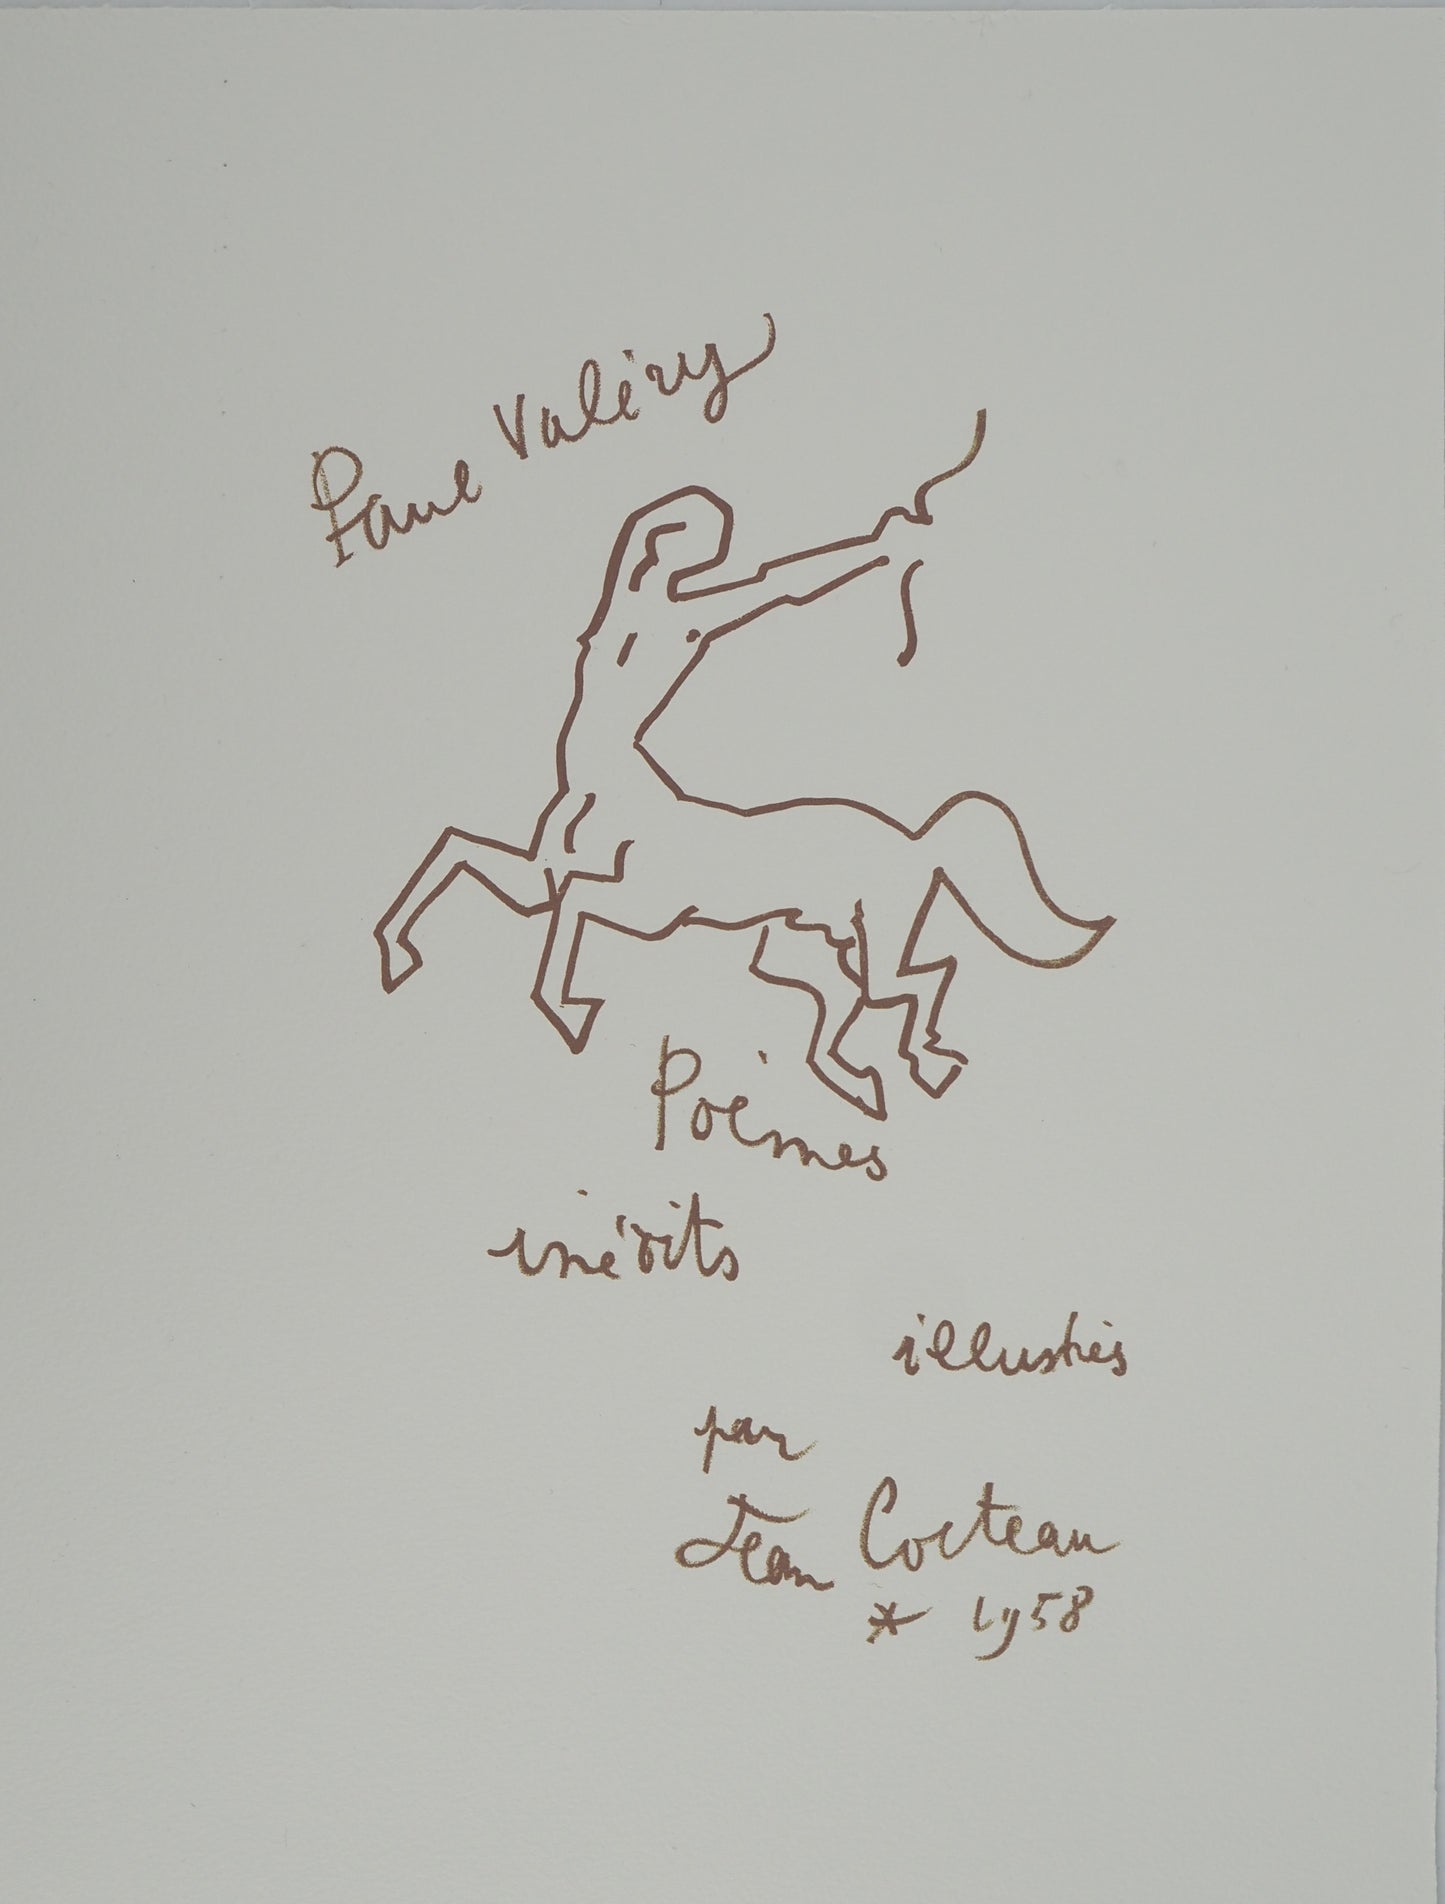 Paul Valéry
Poèmes
inédits
illustrés
par
Jean Cocteau
* 1958